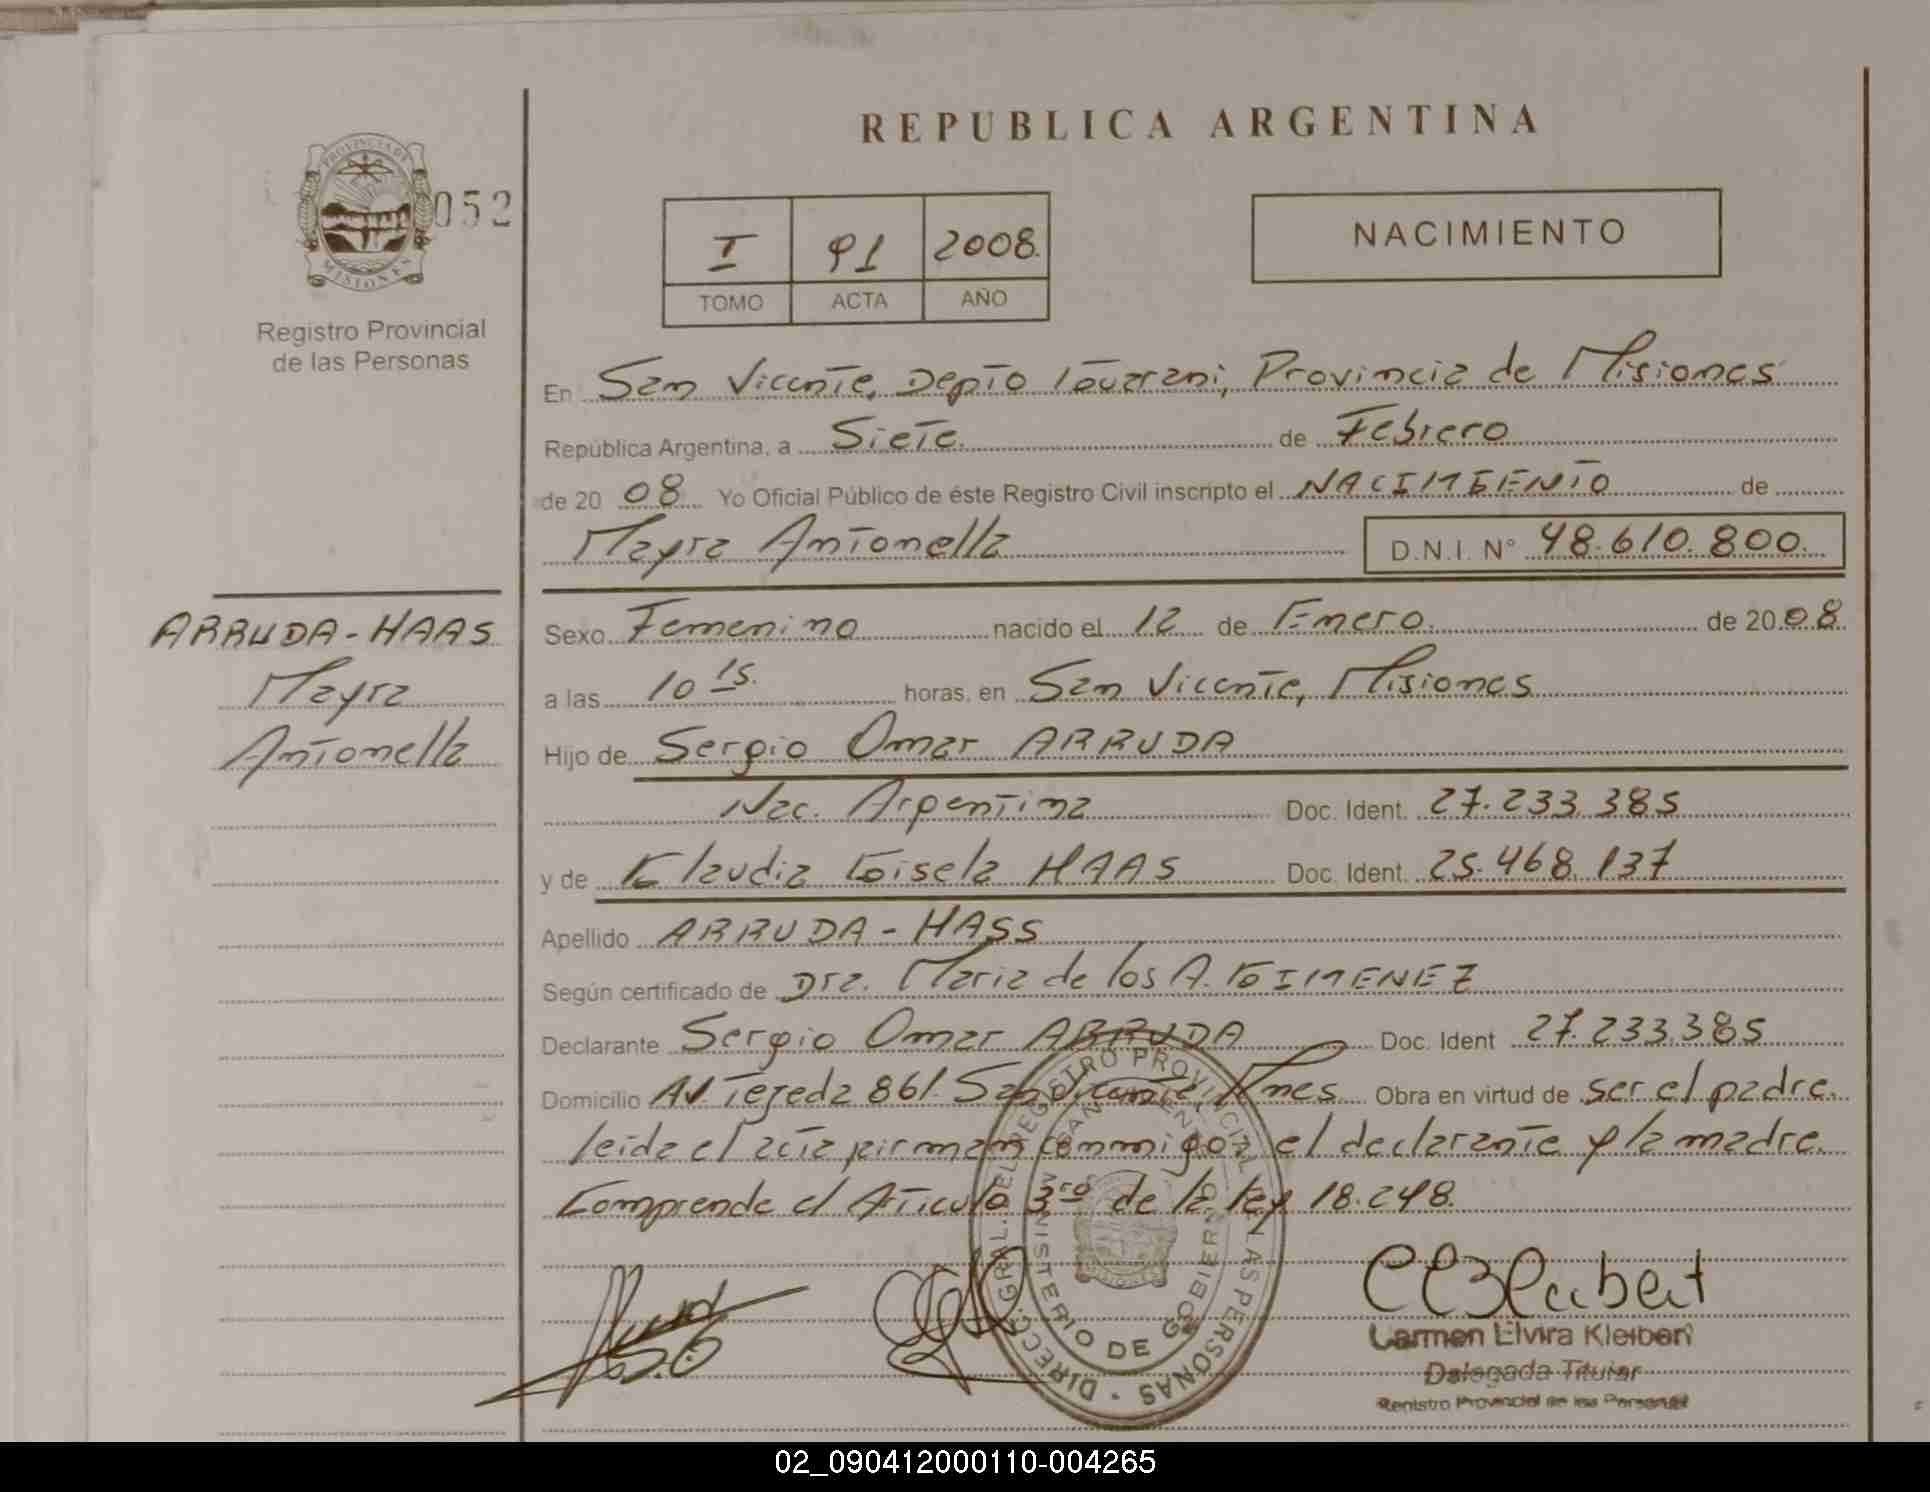 REPUBLICA ARGENTINA
PROVINCIA DE
MISIONES
052
Registro Provincial
de las Personas
I 91 2008.
TOMO ACTA AÑO
NACIMIENTO
En San Vicente, Depto Guarani, Provincia de Misiones
República Argentina, a Siete. de Febrero
de 20 08 Yo Oficial Público de éste Registro Civil inscripto el NACIMIENTO de
Mayra Antonella D.N.I. N° 48.610.800.
ARRUDA-HAAS
Mayra
Antonella
Sexo Femenino nacido el 12 de Enero. de 20 08
a las 10 15. horas, en San Vicente, Misiones
Hijo de Sergio Omar ARRUDA
Nac. Argentina Doc. Ident. 27.233.385
y de Klaudia Gisela HAAS Doc. Ident. 25.468.137
Apellido ARRUDA-HASS
Según certificado de Dra. Maria de los A. GIMENEZ
Declarante Sergio Omar ARRUDA Doc. Ident 27.233.385
Domicilio Av. Tejeda 861. San Vicente, Mnes. Obra en virtud de ser el padre.
leida el acta firman conmigo, el declarante y la madre.
Comprende el Articulo 3ro de la ley 18.248.
DIRECC. GRAL. DEL REGISTRO PROVINCIAL DE LAS PERSONAS
MINISTERIO DE GOBIERNO
MISIONES
Carmen Elvira Kleibert
Delegada Titular
Registro Provincial de las Personas
02_090412000110-004265